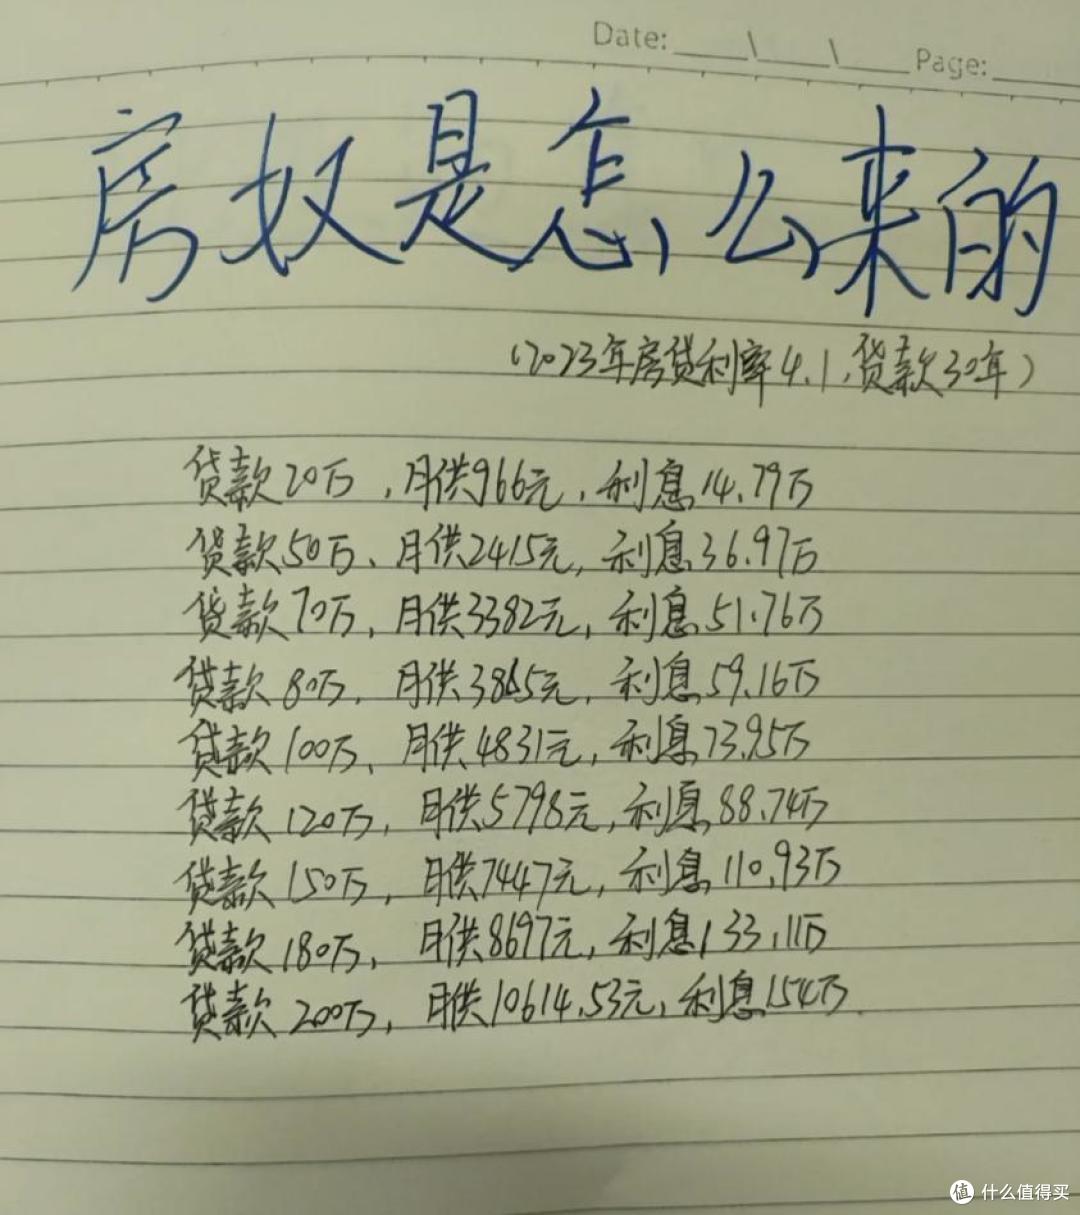 Date: ____\____\____ Page: ____
房奴是怎么来的
(2023年房贷利率4.1,贷款30年)
贷款20万,月供966元,利息14.79万
贷款50万、月供2415元,利息36.97万
贷款70万,月供3382元,利息51.76万
贷款80万,月供3865元,利息59.16万
贷款100万、月供4831元,利息73.95万
贷款120万,月供5798元,利息88.74万
贷款150万,月供7447元,利息110.93万
贷款180万,月供8697元,利息133.11万
贷款200万,月供10614.53元,利息154万
值 什么值得买